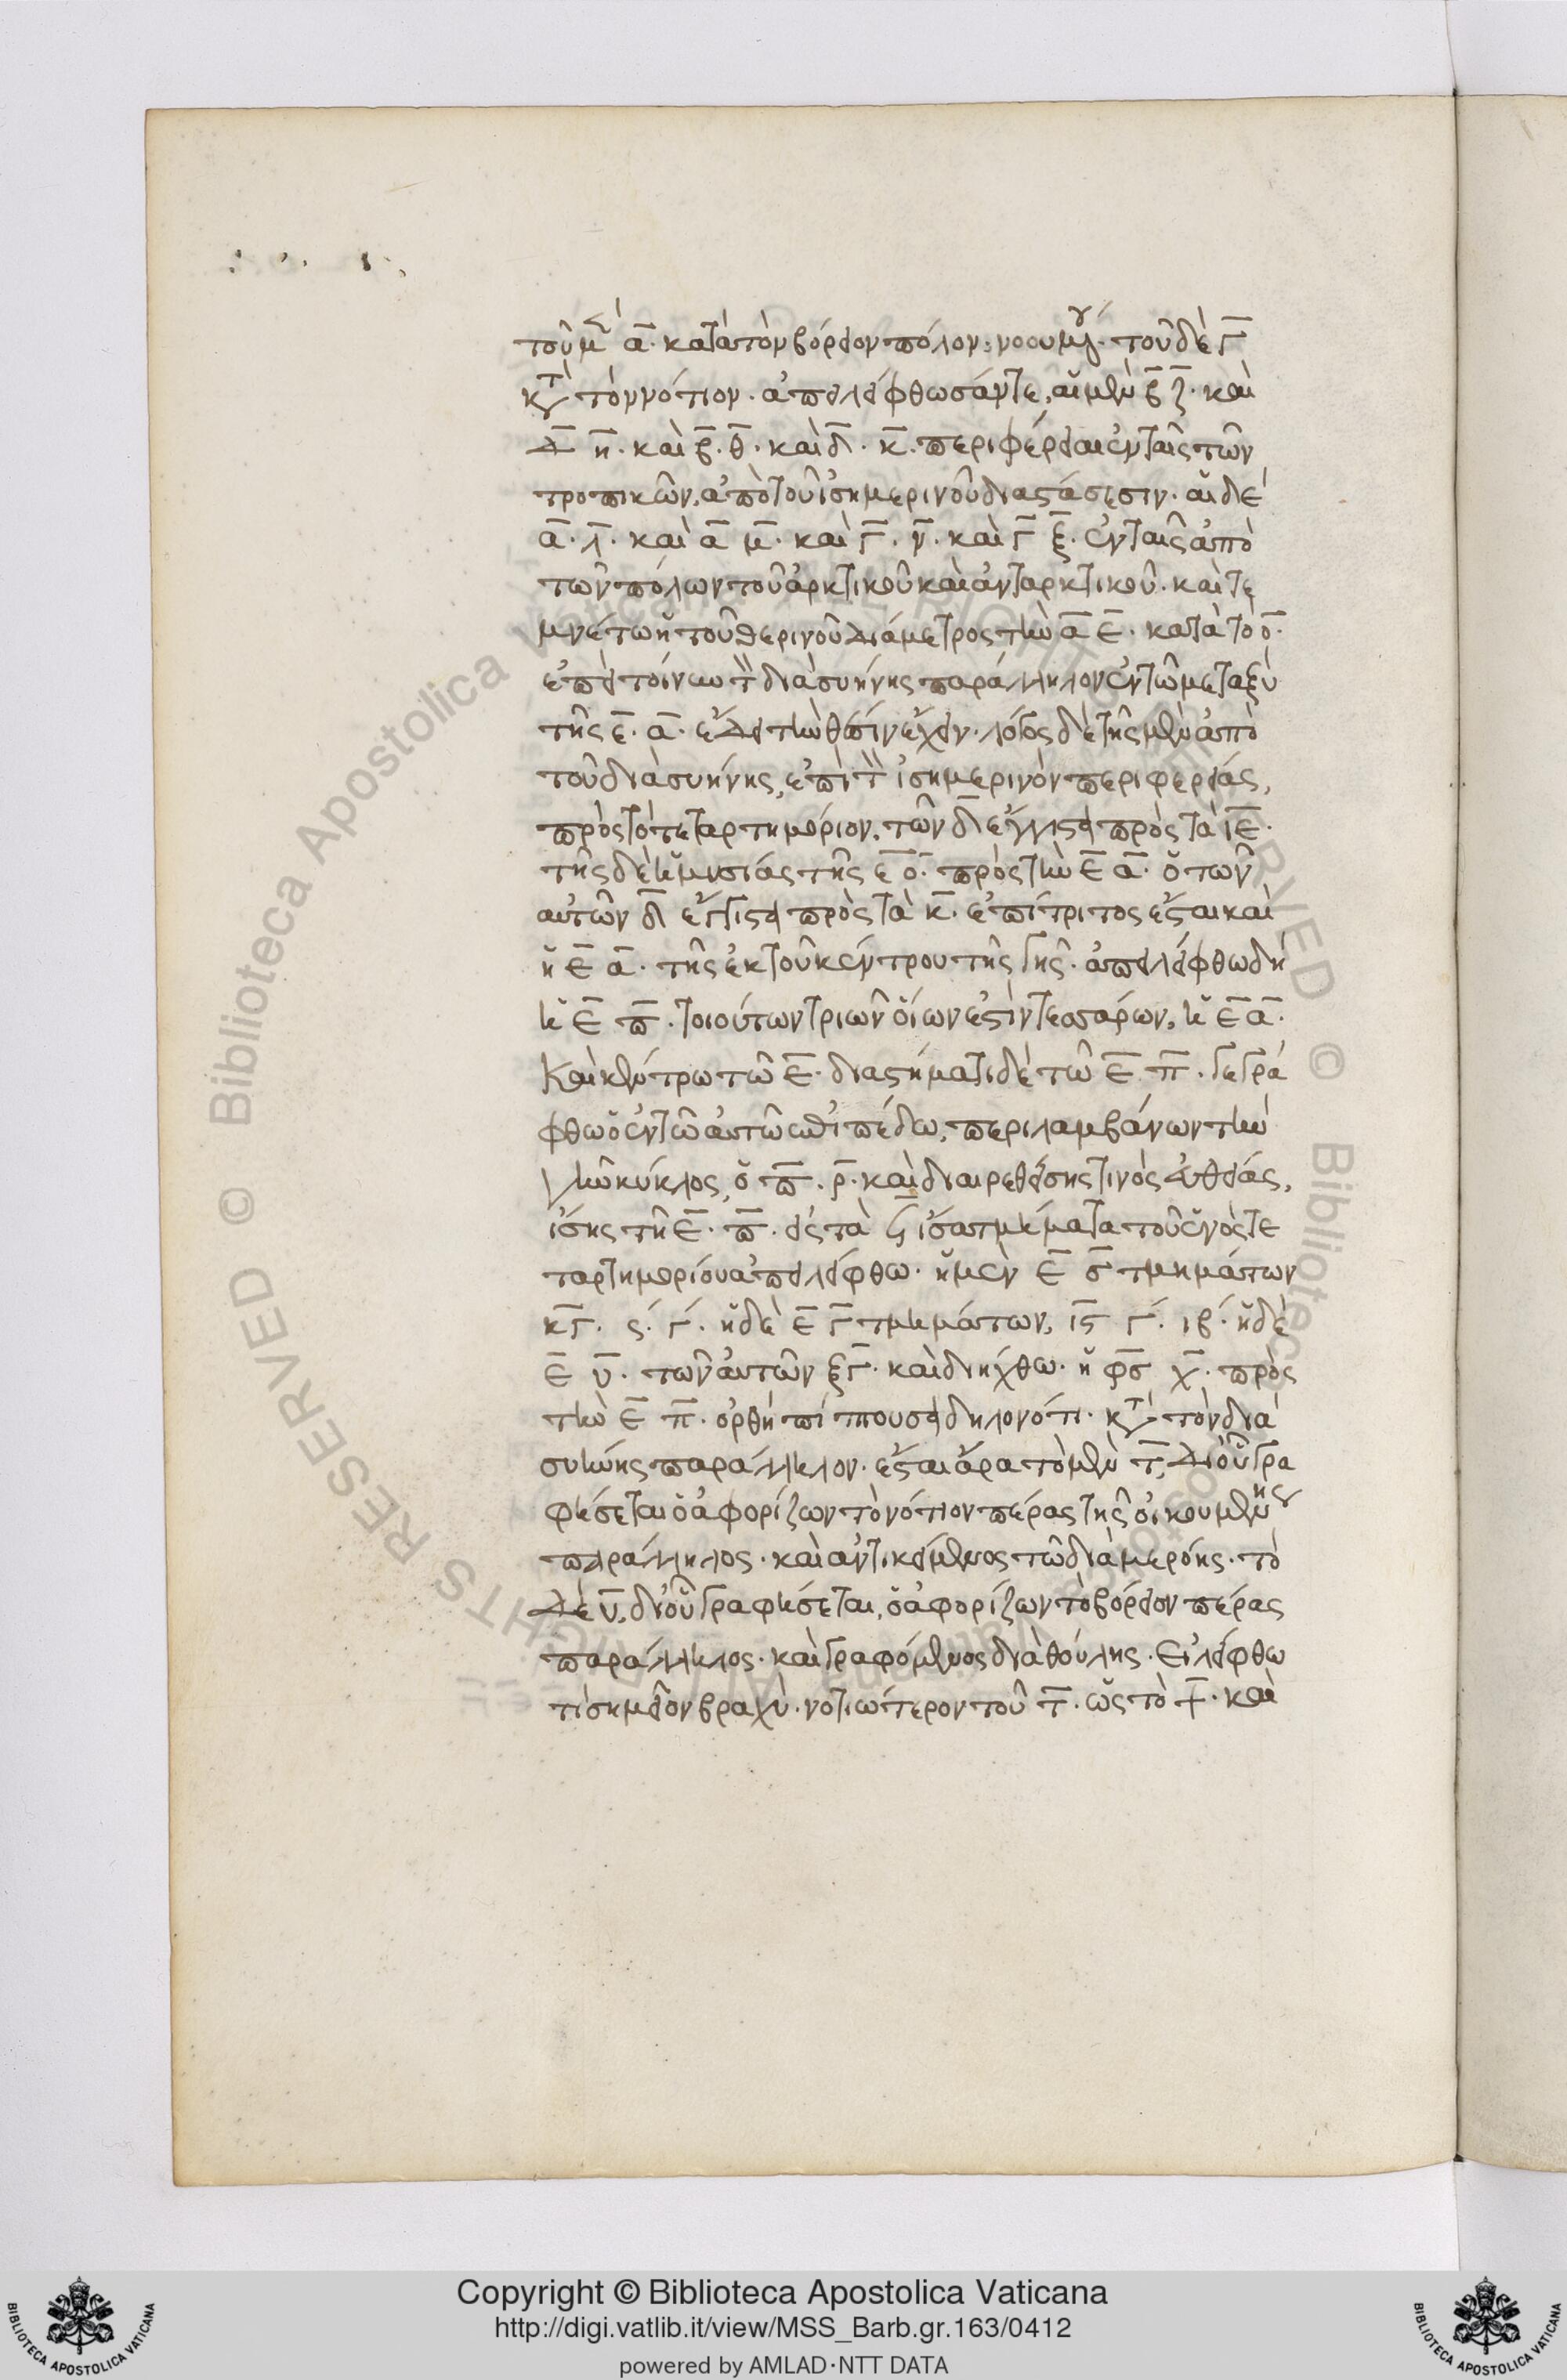 τοῦ μ(ὲν) α̅. κατὰ τὸν βόρειον πόλον νοουμ(έν)ου. τοῦ δὲ Γ̅
κ(α)τ(ὰ) τὸν νότιον. ἀπειλείφθωσάν τε, αἱ μὲν β̅ ζ̅. καὶ
Δ̅ η̅. καὶ β̅. θ̅. καὶ δ̅. κ̅. περιφέρειαι ἐν ταῖς τῶν
τροπικῶν, ἀπὸ τοῦ ἰσημερινοῦ διαστάσεσιν. αἱ δὲ
α̅. λ̅. καὶ α̅ μ̅. καὶ Γ̅. ν̅. καὶ Γ̅ ξ̅. ἐν ταῖς ἀπὸ
τῶν πόλων τοῦ ἀρκτικοῦ καὶ ἀνταρκτικοῦ. καὶ τε
μνέτω ἡ τοῦ θερινοῦ διάμετρος τὴν α̅ ε̅. κατὰ τὸ ο̅.
ἐπεὶ τοίνυν τὸν διὰ συήνης παράλληλον ἐν τῷ μεταξὺ
τῆς ε̅. α̅. ἔδει τὴν θέσιν ἔχειν. λόγος δὲ τῆς μὲν ἀπὸ
τοῦ διὰ συήνης, ἐπὶ τὸν ἰσημερινὸν περιφερείας,
πρὸς τὸ τεταρτημόριον. τῶν δ̅ ἔγγιστα πρὸς τὰ ι̅ε̅.
τῆς δὲ ἡμισείας τῆς ε̅ ο̅. πρὸς τὴν ε̅ α̅. ὁ τῶν
αὐτῶν δ̅ ἔγγιστα πρὸς τὰ κ̅. ἐπίτριτος ἔσται καὶ
ἡ ε̅ α̅. τῆς ἐκ τοῦ κέντρου τῆς γῆς. ἀπειλείφθω δὴ
ἡ ε̅ π̅. τοιούτων τριῶν οἵων ἐστὶν τεσσάρων, ἡ ε̅ α̅.
Καὶ κέντρω τῷ ε̅. διαστήματι δὲ τῷ ε̅ π̅. γεγρά
φθω ὁ ἐν τῷ αὐτῷ ἐπιπέδω, περιλαμβάνων τὴν
γῆν κύκλος, ὁ π̅. ρ̅. καὶ διαιρεθείσης τινὸς εὐθείας,
ἴσης τῇ ε̅. π̅. εἰς τὰ ϟ̅ ἴσα τμήματα τοῦ ἑνὸς τε
ταρτημορίου ἀπειλείφθω. ἡ μὲν ε̅ σ̅ τμημάτων
κ̅Γ̅. ς´. γ´. ἡ δὲ ε̅ Γ̅ τμημάτων, ι̅ς̅ γ´. ιβ´. ἡ δὲ
ε̅ υ̅. τῶν αὐτῶν ξ̅Γ̅. καὶ διήχθω. ἡ φ̅σ̅ χ̅. πρὸς
τὴν ε̅ π̅. ὀρθὴ πίπτουσα δηλονότι. κ(α)τ(ὰ) τὸν διὰ
συήνης παράλληλον. ἔσται ἄρα τὸ μὲν τ̅, δι' οὗ γρα
φήσεται ὁ ἀφορίζων τὸ νότιον πέρας τῆς οἰκουμένης
παράλληλος. καὶ ἀντικείμενος τῷ διὰ μερόης. τὸ
δὲ υ̅. δι' οὗ γραφήσεται, ὁ ἀφορίζων τὸ βόρειον πέρας
παράλληλος. καὶ γραφόμενος διὰ θούλης. Εἰλείφθω
τὶ σημεῖον βραχὺ. νοτιώτερον τοῦ τ̅. ὡς τὸ